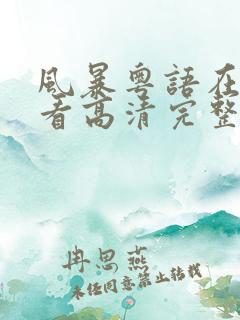 風暴粵語在
看高清完整
冉思燕
未经同意禁止转载